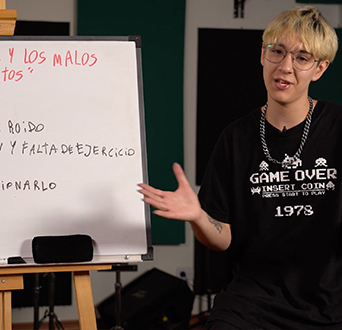 Y LOS MALOS
TOS"
ROIDO
Y FALTA DE EJERCICIO
IONARLO
GAME OVER
INSERT COIN
PRESS START TO PLAY
1978